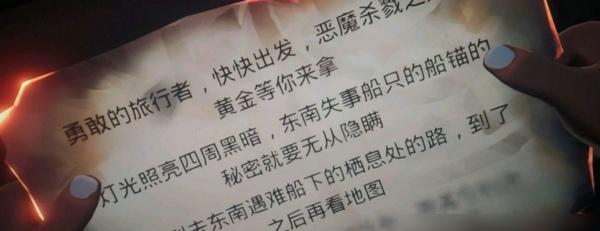 勇敢的旅行者，快快出发，恶魔杀戮之
黄金等你来拿
灯光照亮四周黑暗，东南失事船只的船锚的
秘密就要无从隐瞒
去东南遇难船下的栖息处的路，到了
之后再看地图